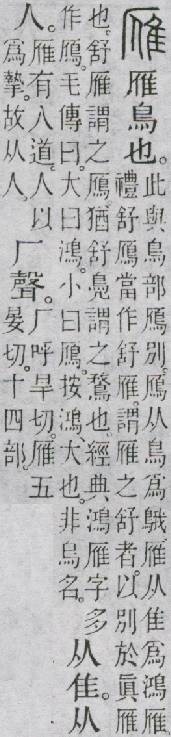 雁 雁鳥也。此與鳥部鴈別。鴈从鳥爲鵝。雁从隹爲鴻雁。禮舒鴈當作舒雁。謂雁之舒者。以別於眞雁
也。舒雁謂之鴈。猶舒鳧謂之鶩也。經典鴻雁字多作鴈。毛傳曰。大曰鴻。小曰鴈。按鴻、大也。非鳥名。从隹。从
人。雁有八道。人以爲摯。故从人。厂聲。厂呼旱切。雁五晏切。十四部。